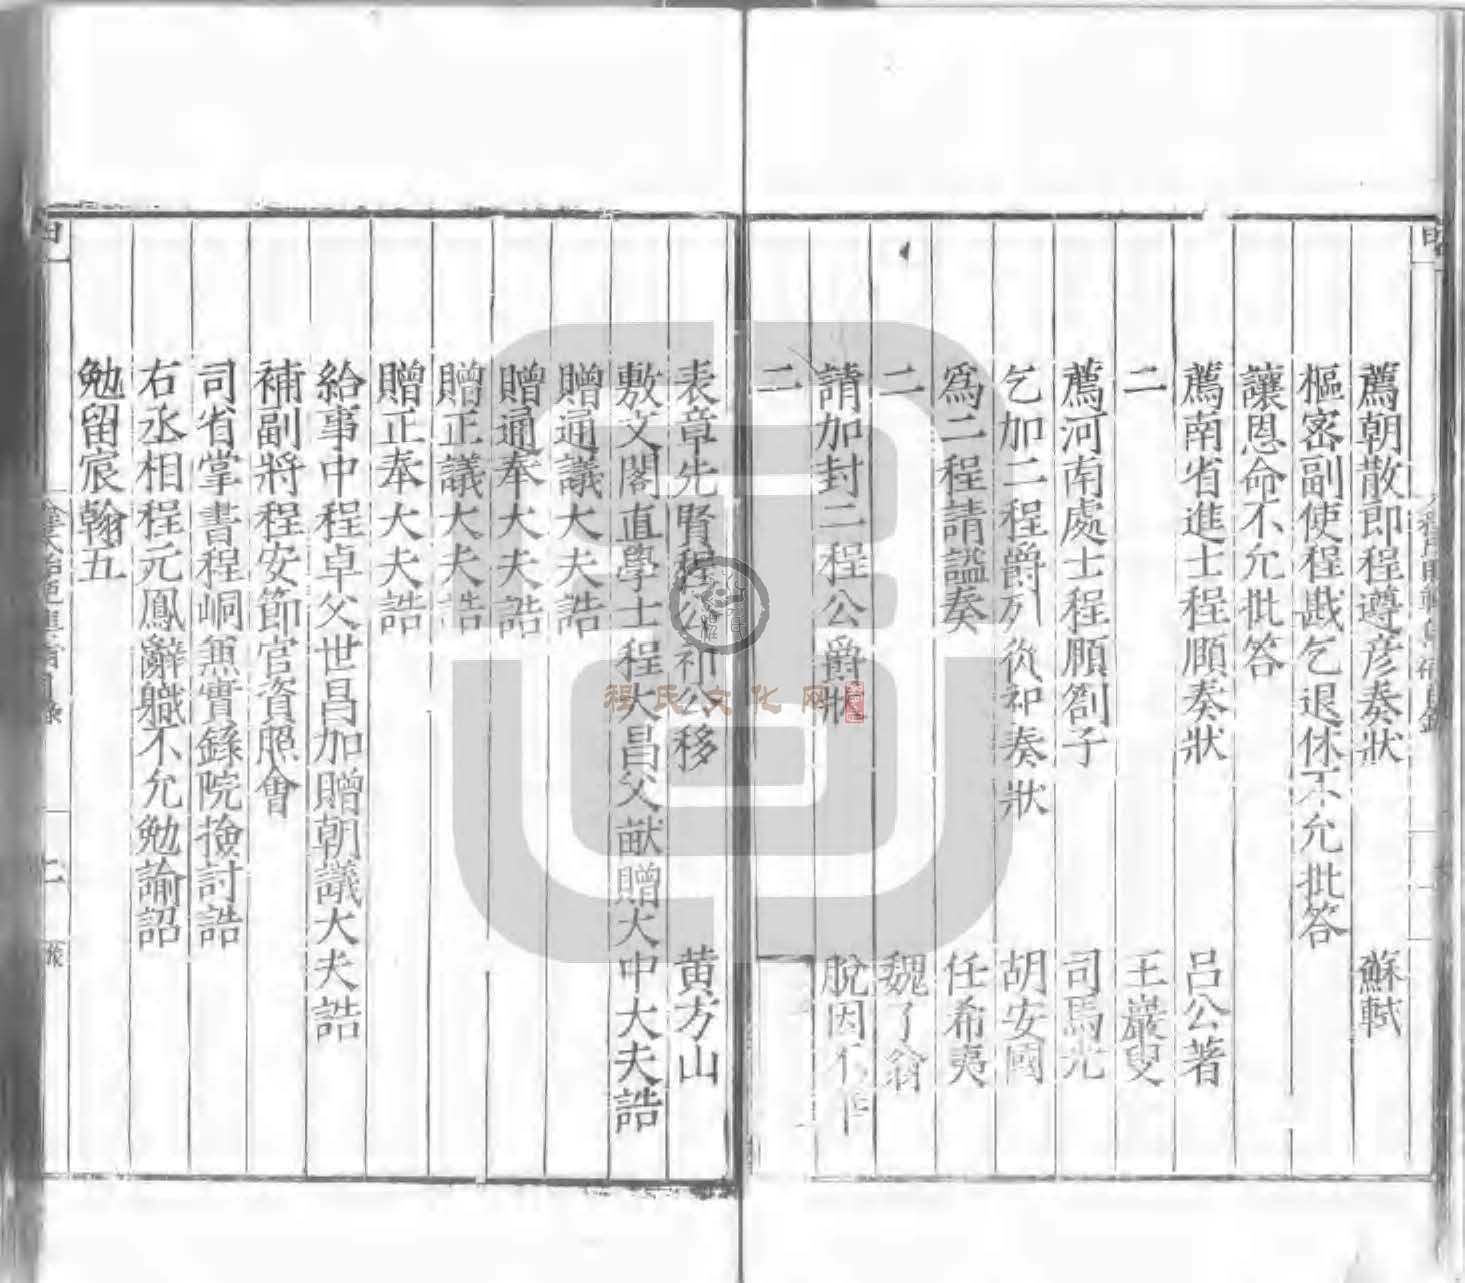 薦朝散郎程遵彥奏狀 蘇軾
樞密副使程戡乞退休不允批答
讓恩命不允批答
薦南省進士程頤奏狀 呂公著
二 王巖叟
薦河南處士程頤劄子 司馬光
乞加二程爵列從祀奏狀 胡安國
爲二程請謚奏 任希夷
二 魏了翁
請加封二程公爵狀 脫因不花
二
表章先賢程公祠公移 黃方山
敷文閣直學士程大昌父猷贈大中大夫誥
贈通議大夫誥
贈通奉大夫誥
贈正議大夫誥
贈正奉大夫誥
給事中程卓父世昌加贈朝議大夫誥
補副將程安節官資照會
司省掌書程峒兼實錄院撿討誥
右丞相程元鳳辭職不允勉諭詔
勉留宸翰五
程氏文化网